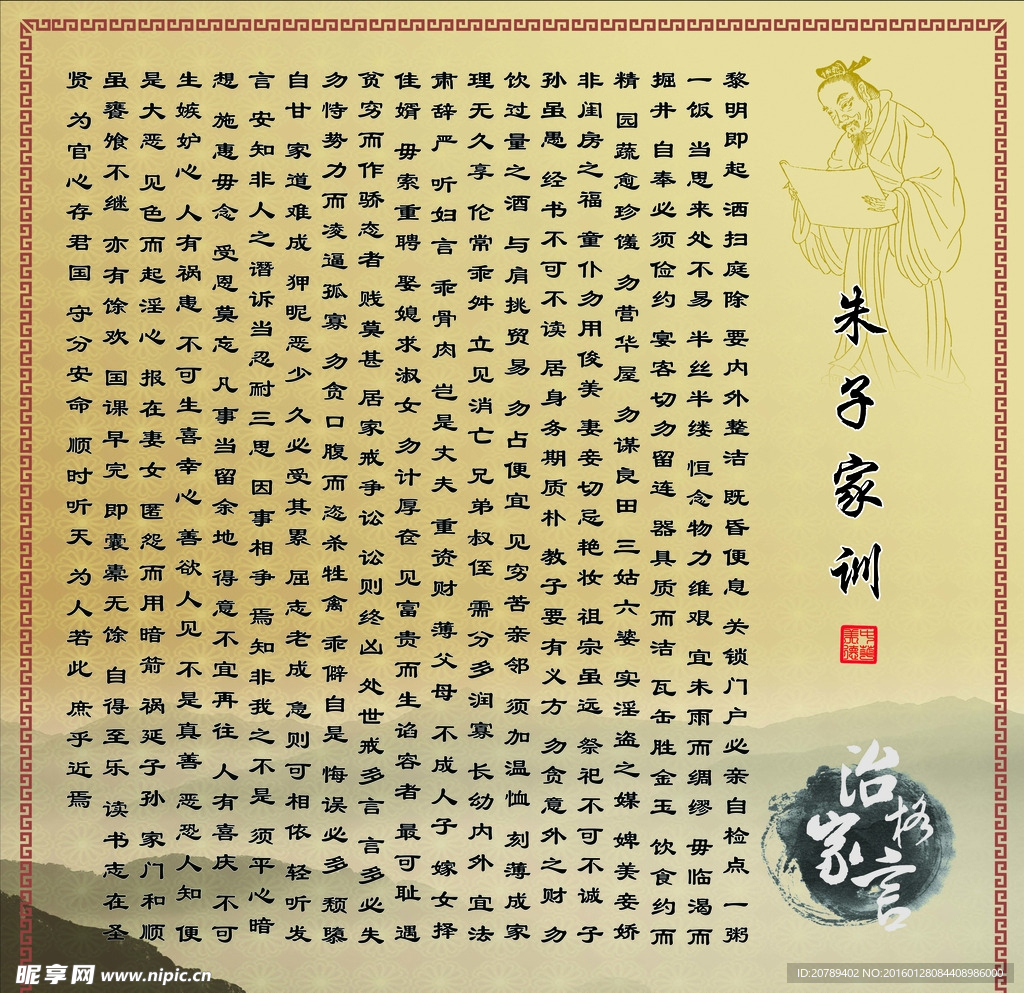 朱子家训
中华美德
黎明即起 洒扫庭除 要内外整洁 既昏便息 关锁门户必亲自检点 一粥
一饭 当思来处不易 半丝半缕 恒念物力维艰 宜未雨而绸缪 毋临渴而
掘井 自奉必须俭约 宴客切勿留连 器具质而洁 瓦缶胜金玉 饮食约而
精 园蔬愈珍馐 勿营华屋 勿谋良田 三姑六婆 实淫盗之媒 婢美妾娇
非闺房之福 童仆勿用俊美 妻妾切忌艳妆 祖宗虽远 祭祀不可不诚 子
孙虽愚 经书不可不读 居身务期质朴 教子要有义方 勿贪意外之财 勿
饮过量之酒 与肩挑贸易 勿占便宜 见穷苦亲邻 须加温恤 刻薄成家
理无久享 伦常乖舛 立见消亡 兄弟叔侄 需分多润寡 长幼内外 宜法
肃辞严 听妇言 乖骨肉 岂是丈夫 重资财 薄父母 不成人子 嫁女择
佳婿 毋索重聘 娶媳求淑女 勿计厚奁 见富贵而生谄容者 最可耻 遇
贫穷而作骄态者 贱莫甚 居家戒争讼 讼则终凶 处世戒多言 言多必失
勿恃势力而凌逼孤寡 勿贪口腹而恣杀牲禽 乖僻自是 悔误必多 颓隳
自甘 家道难成 狎昵恶少 久必受其累 屈志老成 急则可相依 轻听发
言 安知非人之谮诉当忍耐三思 因事相争 焉知非我之不是 须平心暗
想 施惠毋念 受恩莫忘 凡事当留余地 得意不宜再往 人有喜庆 不可
生嫉妒心 人有祸患 不可生喜幸心 善欲人见 不是真善 恶恐人知 便
是大恶 见色而起淫心 报在妻女 匿怨而用暗箭 祸延子孙 家门和顺
虽饔飧不继 亦有馀欢 国课早完 即囊橐无馀 自得至乐 读书志在圣
贤 为官心存君国 守分安命 顺时听天 为人若此 庶乎近焉
治家格言
昵享网 www.nipic.cn
ID:20789402 NO:20160128084408986000